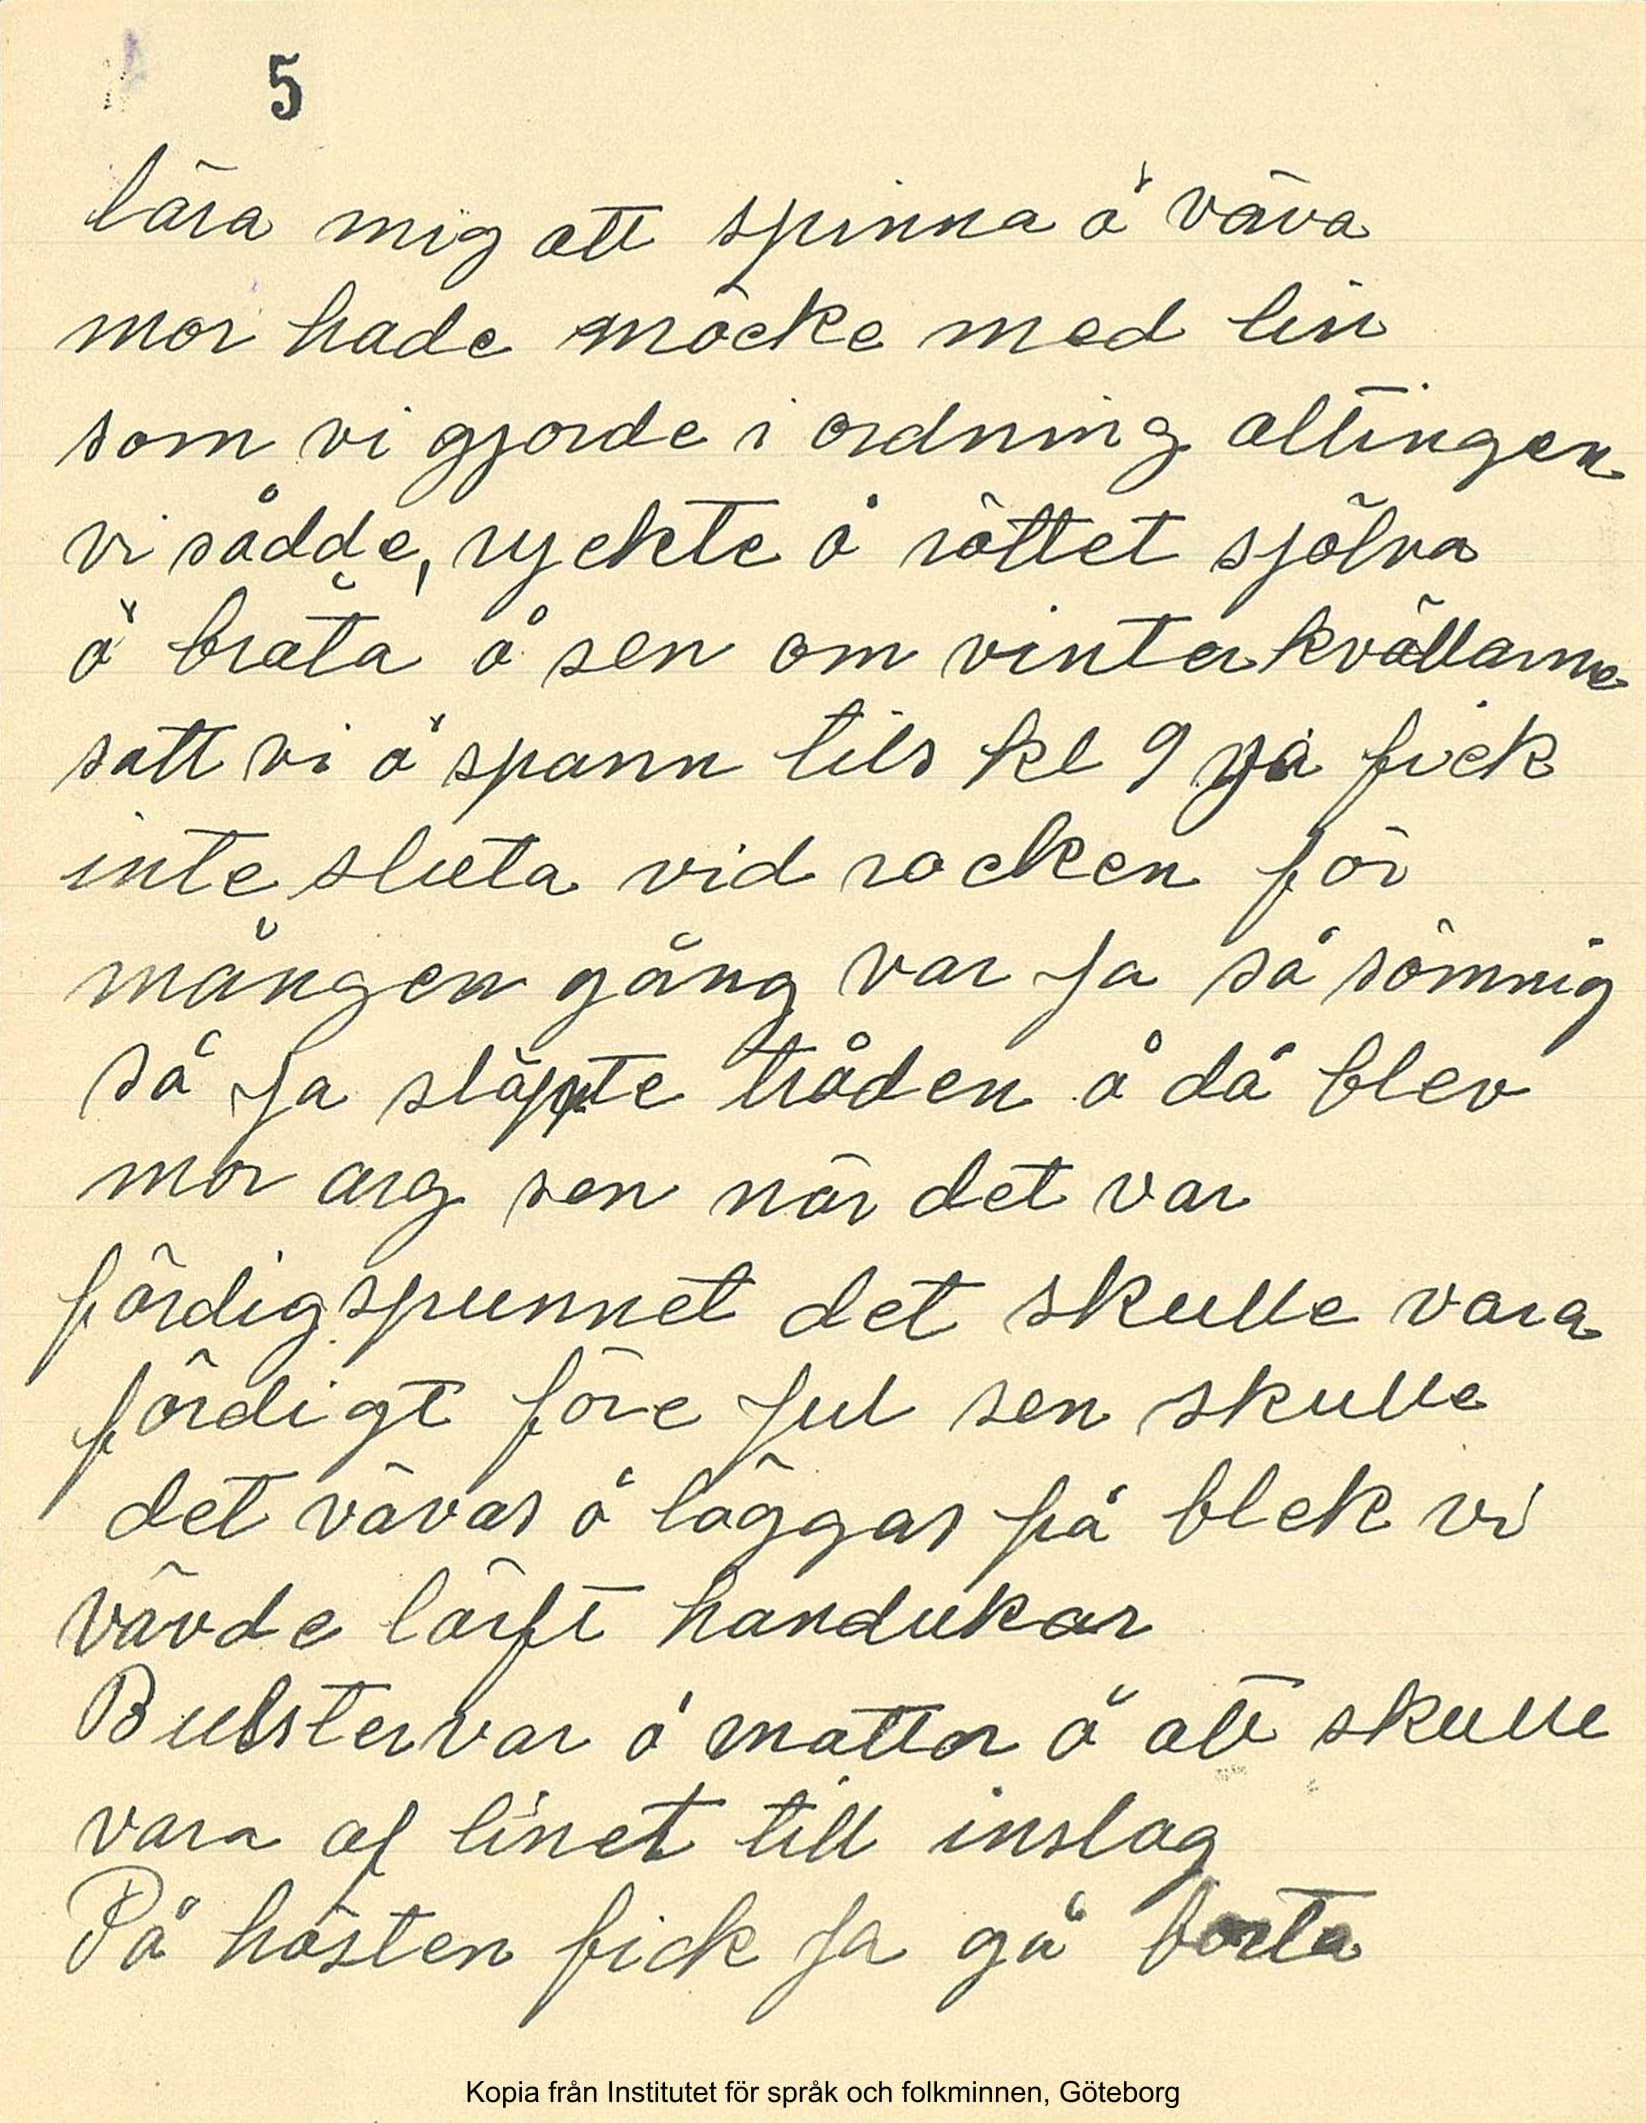 5
lära mig att spinna å väva
mor hade möcke med lin
som vi gjorde i ordning altingen
vi sådde, ryckte å röttet själva
å bråta å sen om vinterkvällarne
satt vi å spann tils kl 9 ja fick
inte sluta vid rocken för
mången gång var Ja så sömnig
så Ja släpte tråden å då blev
mor arg sen när det var
färdigspunnet det skulle vara
färdigt före Jul sen skulle
det vävas å läggas på blek vi
vävde lärft handukar
Bulstervar å mattor å alt skulle
vara af linet till inslag
På hösten fick Ja gå borta
Kopia från Institutet för språk och folkminnen, Göteborg